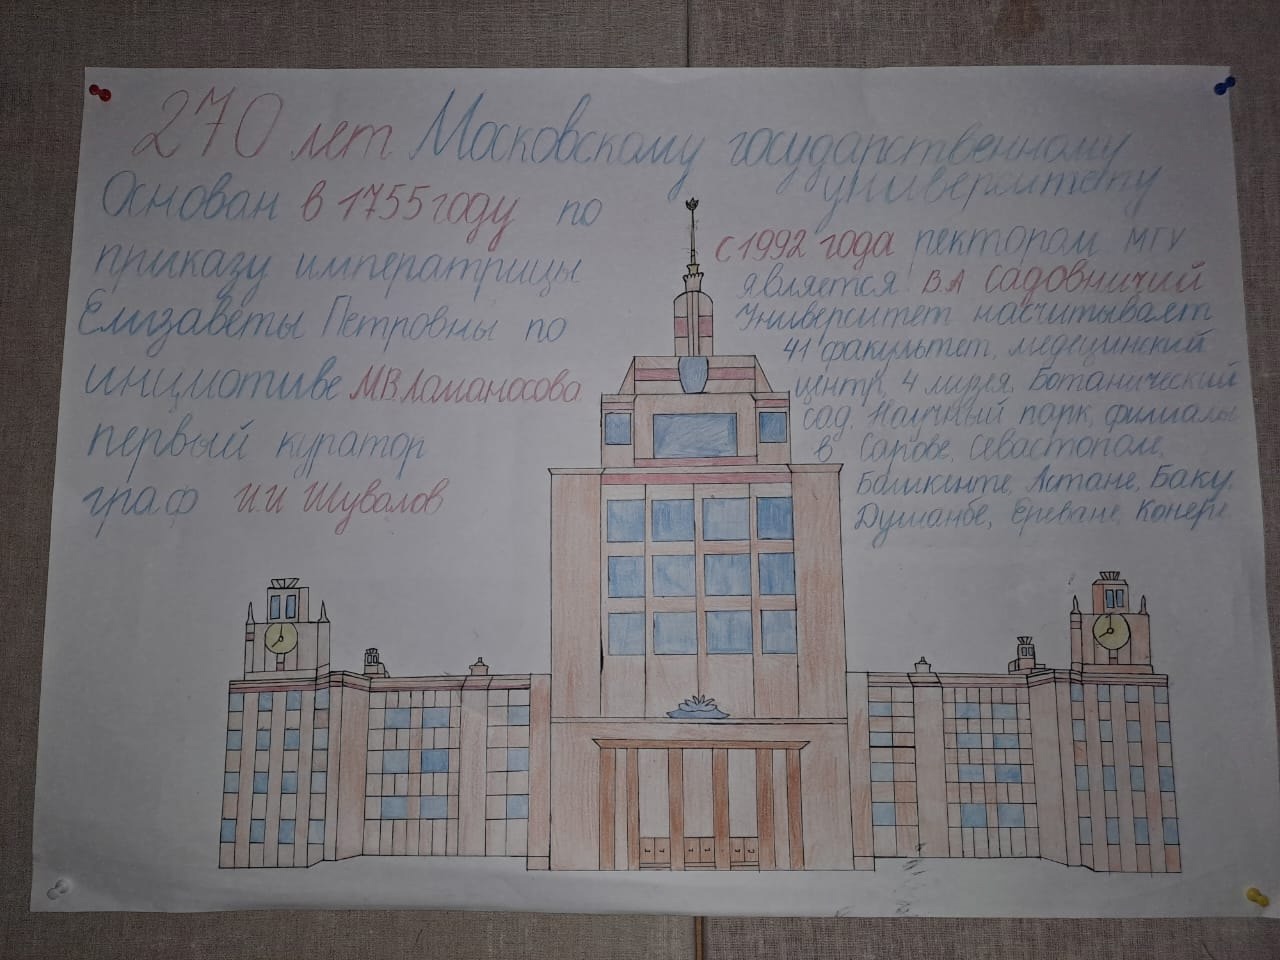 270 лет Московскому государственному
университету
Основан в 1755 году по
приказу императрицы
Елизаветы Петровны по
инициотиве М.В Ломаносова
первый куратор
граф И.И Шувалов
с 1992 года ректором МГУ
является В.А Садовничий
Университет насчитывает
41 факультет, медецинский
центр, 4 музея, Ботанический
сад, Научный парк, филиалы
в Сарове, Севастополе,
Башкенте, Астане, Баку,
Душанбе, Ереване, Копере